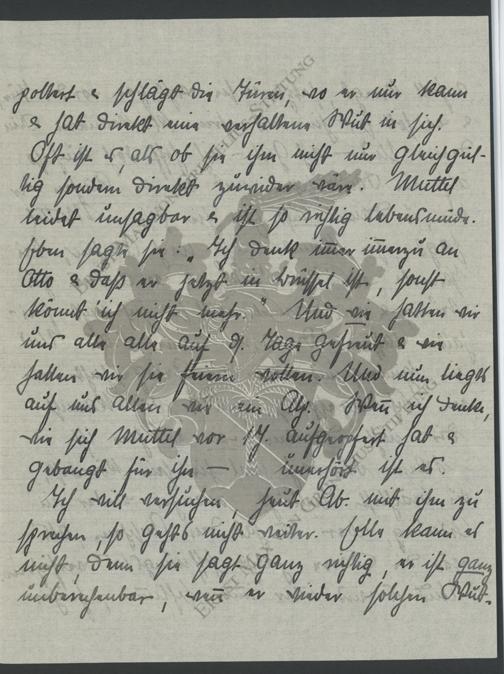 poltert & schlägt die Türen, wo er nur kann
& hat direkt eine verhaltene Wut in sich.
Oft ist es, als ob sie ihm nicht nur gleichgül-
tig sondern direkt zuwider wäre. Muttel
leidet unsagbar & ist so richtig lebensmüde.
Eben sagte sie: „Ich denk immer immerzu an
Otto & daß er jetzt in Brüssel ist, sonst
könnt ich nicht mehr." Und wie hatten wir
uns alle alle auf d. Tage gefreut & wie
hatten wir sie feiern wollen. Und nun liegts
auf uns allen wie ein Alp. Wenn ich denke,
wie sich Muttel vor 17 aufgeopfert hat &
gebangt für ihn — unerhört ist es.
Ich will versuchen, heut Ab. mit ihm zu
sprechen so gehts nicht weiter. Elle kann es
nicht, denn sie sagt ganz richtig, er ist ganz
unberechenbar, wenn er wieder solchen Wut-